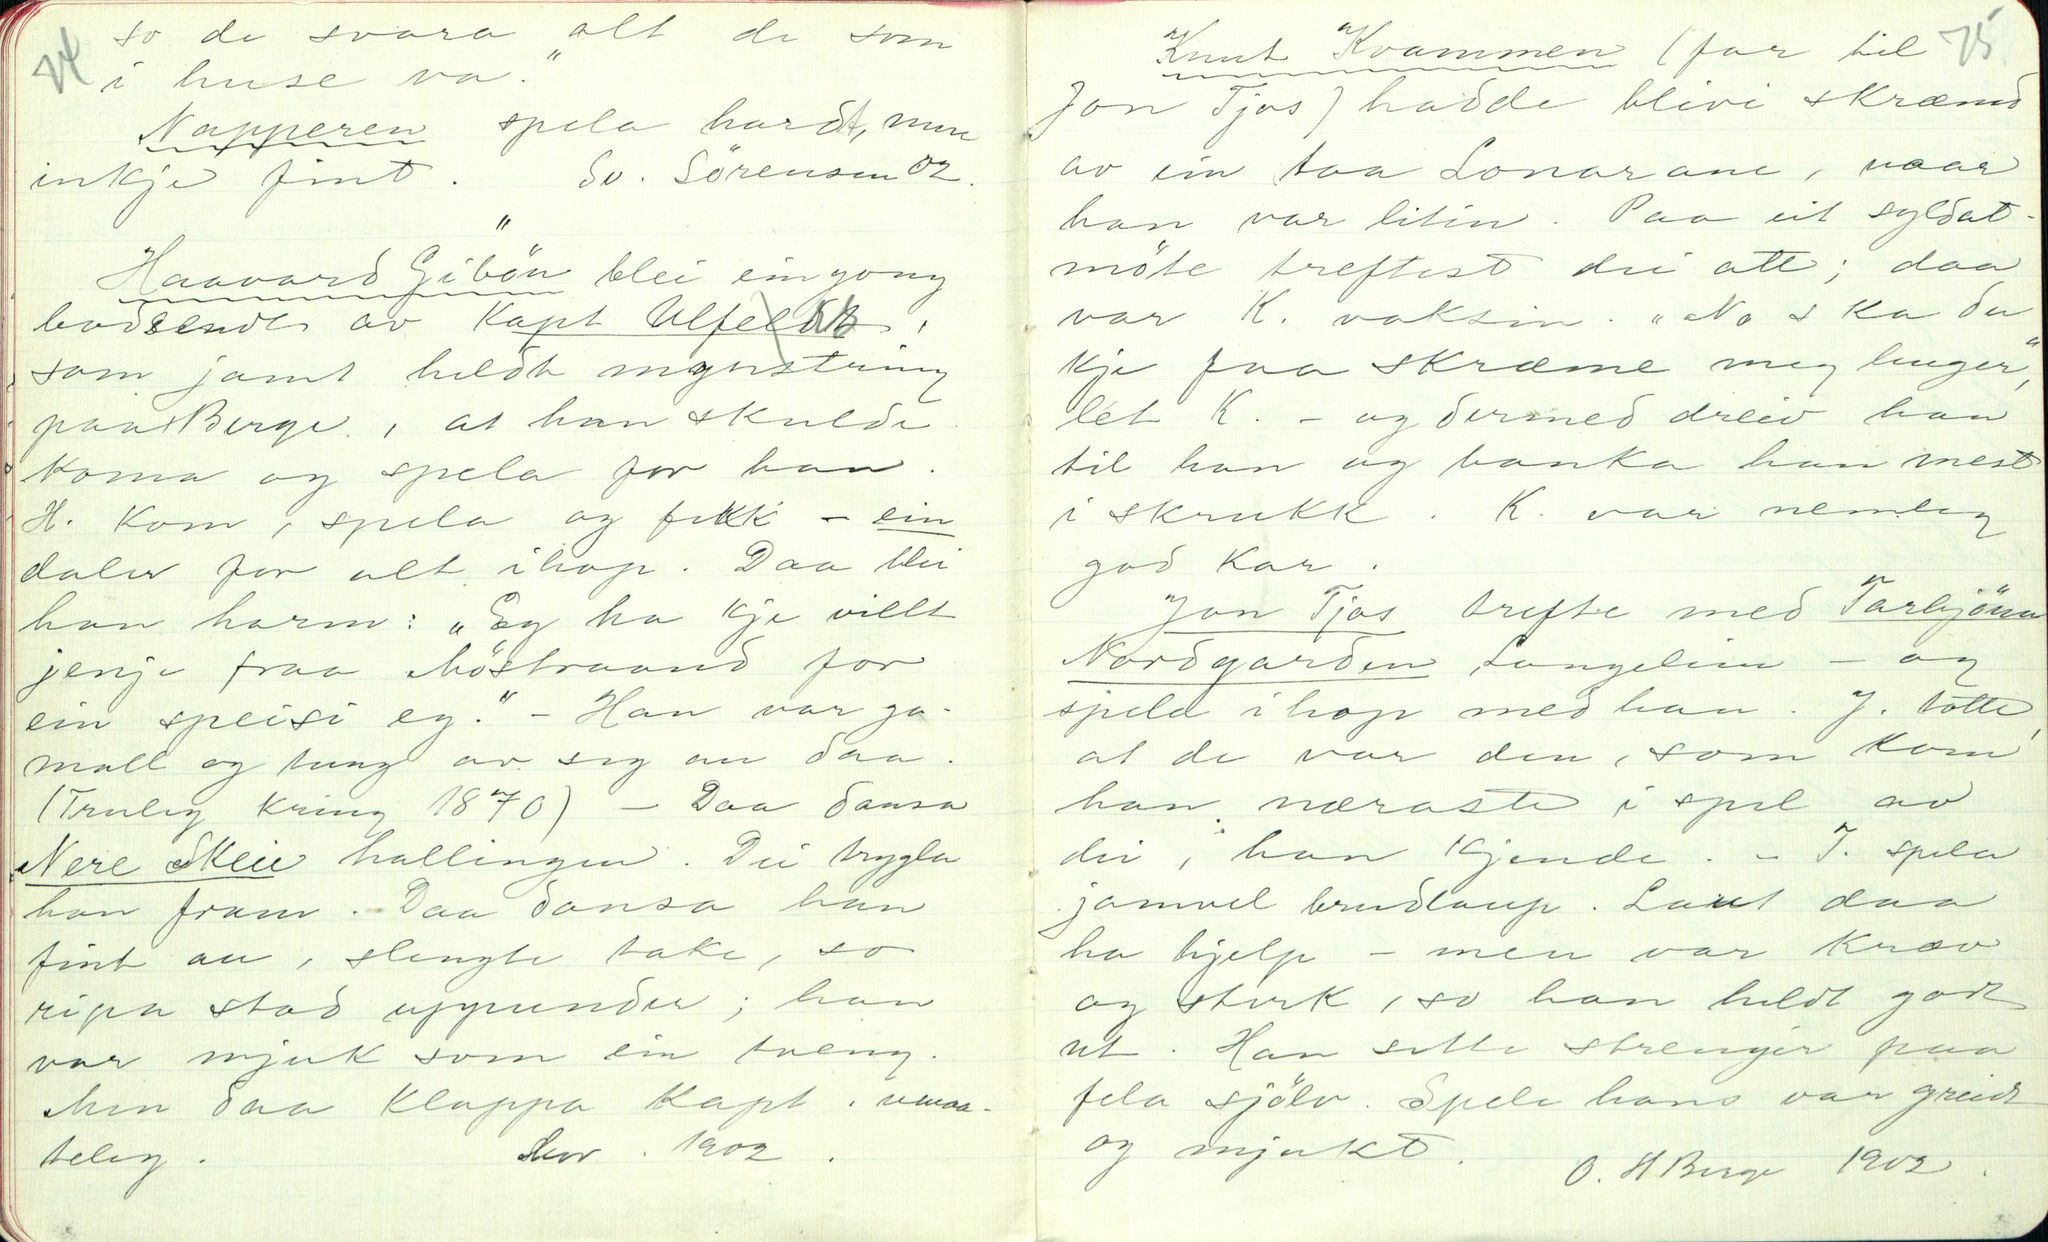 74
so de svara alt de som
i huse va."
Napperen spela hardt, men
inkje fint. Sv. Sörensen 02.
"
Haavard Gibön blei ein gong
bodsendt av Kapt Ulfeldt,
som jamt heldt mynstring
paa Berge, at han skulde
koma og spela for han.
H. kom, spela og fekk – ein
daler for alt ihop. Daa blei
han harm: „Eg ha kje villt
jenje fraa Möstraand for
ein speisi eg." – Han var ga-
mall og tung av seg au daa.
(Truleg kring 1870) – Daa dansa
Nere Skeie hallingen. Dei trygla
han fram. Daa dansa han
fint au, slengte take, so
ripa stod uppunder; han
var mjuk som ein tveng.
Men daa klappa Kapt. uvaa-
teleg. 1902.
75
Knut Kvammen (far til
Jon Tjos) hadde blivi skræmd
av ein taa Lonarane, naar
han var litin. Paa eit syldat-
möte treftest dei att; daa
var K. vaksin. „No ska du
kje faa skræme meg lenger",
let K. – og dermed dreiv han
til han og banka han mest
i skrukk. K. var nemleg
god kar.
Jon Tjos trefte med Tarbjönn
Nordgarden Langeleim – og
spela ihop med han. J. totte,
at de var den, som kom
han næraste i spel av
dei, han kjende. – J. spela
jamvel brudlaup. Laut daa
ha hjelp – men var kræv
og sterk, so han heldt godt
ut. Han sette strengir paa
fela sjölv. Spele hans var greidt
og mjukt. O. H Berge 1902.